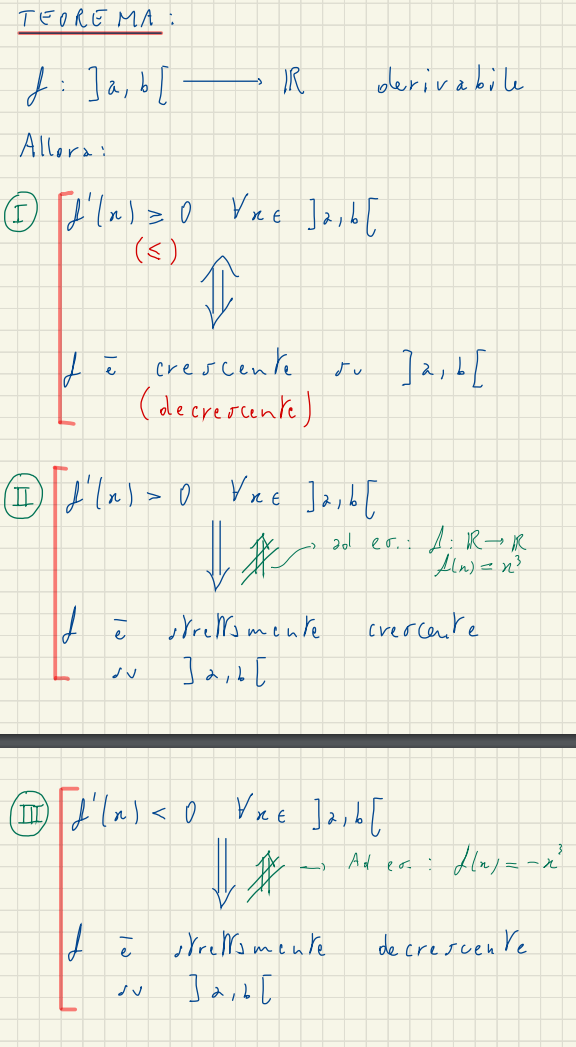 TEOREMA:
f : ]a,b[ ⟶ ℝ derivabile
Allora:
I f'(x) ≥ 0 ∀x∈ ]a,b[
(≤)
⇕
f è crescente su ]a,b[
(decrescente)
II f'(x) > 0 ∀x∈ ]a,b[
⇓ ⇑̸ → ad es.: f: ℝ → ℝ
f(x) = x³
f è strettamente crescente
su ]a,b[
III f'(x) < 0 ∀x∈ ]a,b[
⇓ ⇑̸ → Ad es. : f(x) = -x³
f è strettamente decrescente
su ]a,b[